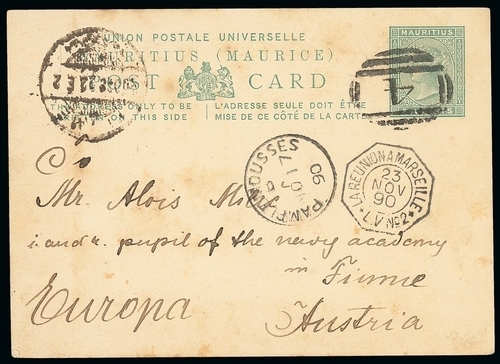 UNION POSTALE UNIVERSELLE
MAURITIUS (MAURICE)
POST CARD
THE ADDRESS ONLY TO BE
WRITTEN ON THIS SIDE
L'ADRESSE SEULE DOIT ÊTRE
MISE DE CE CÔTÉ DE LA CARTE
MAURITIUS
PAMPLEMOUSSES
NO 17
90
LA REUNION A MARSEILLE
23
NOV
90
L V Nº2
Mr. Alois
i. and r. pupil of the navy academy
in Fiume
Europa
Austria